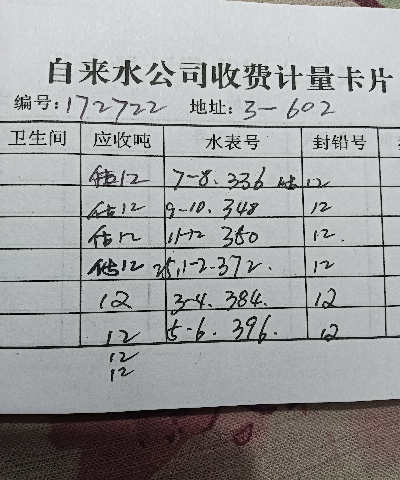 自来水公司收费计量卡片
编号:172722 地址:3-602
卫生间 应收吨 水表号 封铅号
估12 7-8.336 估12
估12 9-10.348 12
估12 11-12 360 12.
估12 25,1-2-372. 12
12 3-4.384. 12
12 5-6.396. 12
12
12